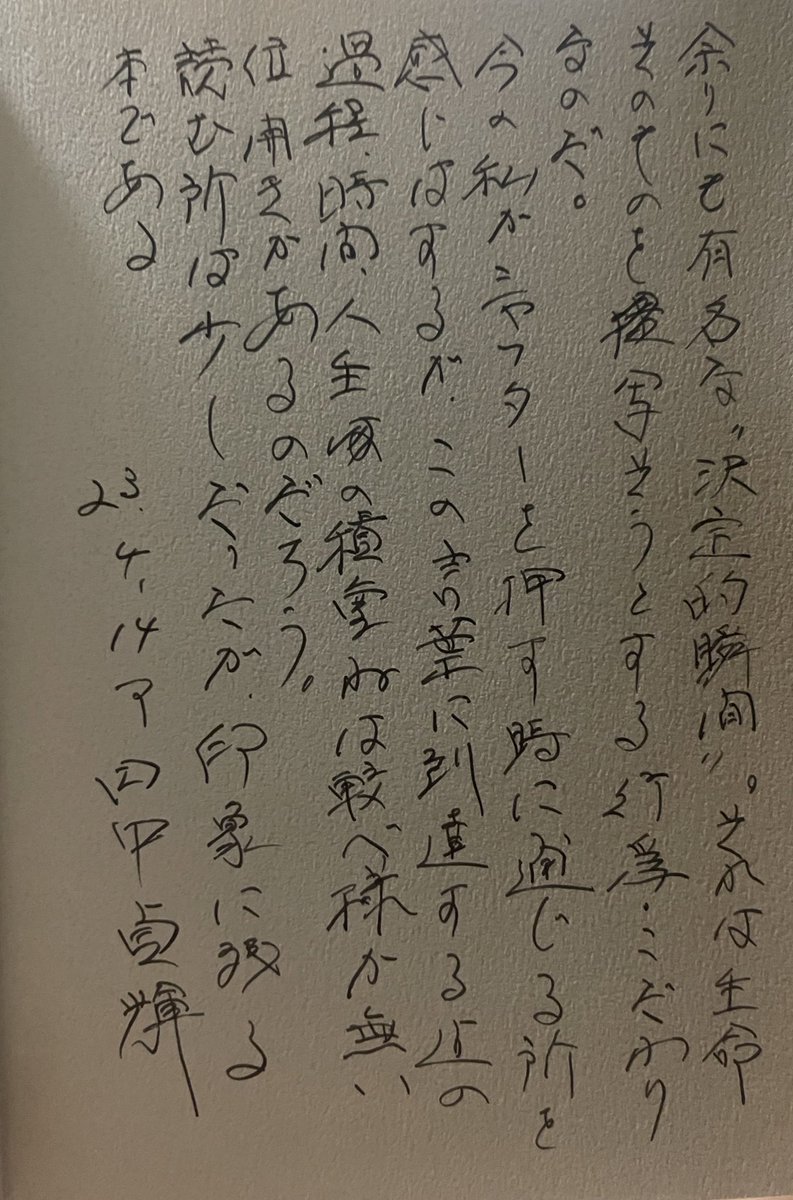 余りにも有名な〝決定的瞬間〟。それは生命
そのものを模写そうとする行為・こだわり
なのだ。
今の私がシャッターを押す時に通じる所を
感じはするが、この言葉に到達する迄の
過程、時間、人生の積重ねは較べ様が無い
位開きがあるのだろう。
読む所は少しだったが、印象に残る
本である
23.4.14 了 田中貞輝